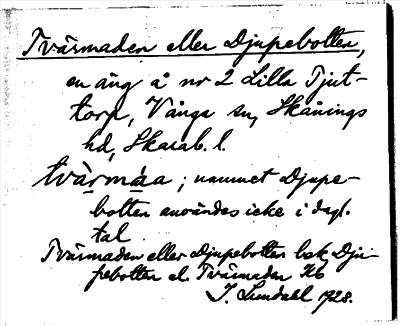 Tvärmaden eller Djupebotten,
en äng å nr 2 Lilla Tjut-
torp, Vånga sn, Skånings
hd, Skarab. l.
tvärmáa; namnet Djupe-
botten användes icke i dagl.
tal.
Tvärmaden eller Djupebotten bsk, Dju-
pebotten el. Tvärmaden
J. Lundahl 1928.